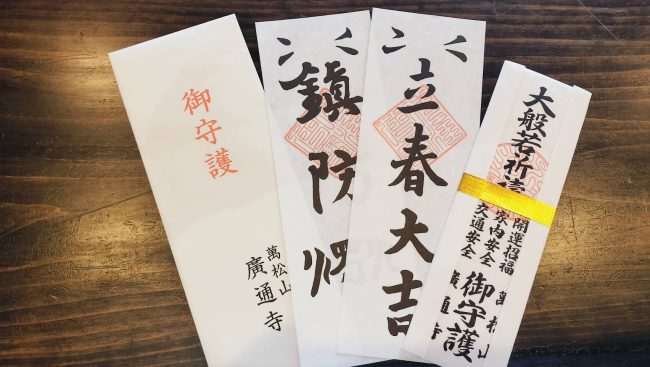 御守護
萬松山
廣通寺
鎮防
立春大吉
大般若祈
開運招福
家内安全
交通安全
御守護